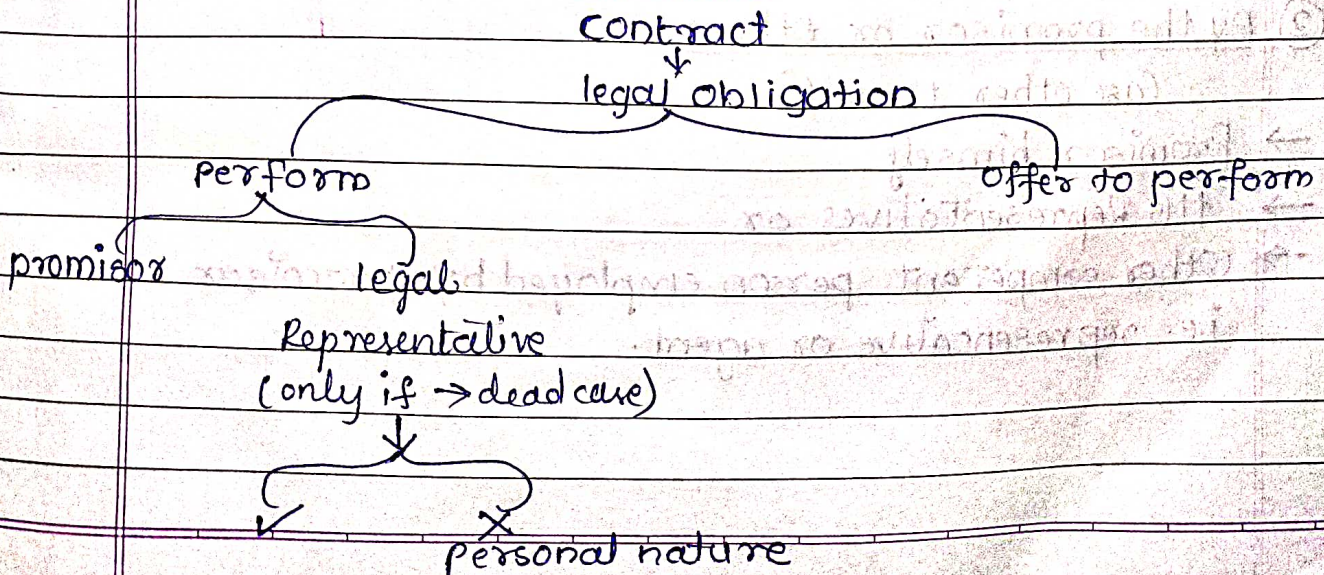 Contract
↓
legal obligation
perform offer to perform
promisor legal
Representative
(only if → dead case)
↓
✓ ×
personal nature